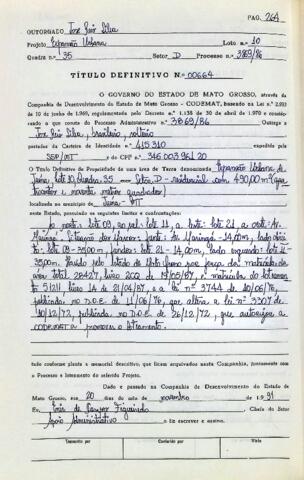 PAG. 264
OUTORGADO José Luiz Silva
Projeto Expansão Urbana Lote n.o 10
Quadra n.o 35 Setor D Processo n.o 3869/86
TÍTULO DEFINITIVO N.o 00664
O GOVERNO DO ESTADO DE MATO GROSSO, através da
Companhia de Desenvolvimento do Estado de Mato Grosso - CODEMAT, baseado na Lei n.o 2.922
de 10 de junho de 1969, regulamentado pelo Decreto n.o 1.138 de 30 de abril de 1970 e conside-
rando o que consta do Processo Administrativo n.o 3869/86 Outorga a
José Luiz Silva, brasileiro, solteiro
portador da Carteira de Identidade n.o 415310 expedida pela
SSP/MT e do CPF n.o 346003961 20
O Título Definitivo de Propriedade de uma Lote de Terra denominada Expansão Urbana de
Juína, Lote 10 Quadra 35 - Setor D - residencial com 490,00 m² (qua-
trocentos e noventa metros quadrados)
localizada no município de Juína - MT
neste Estado, possuindo os seguintes limites e confrontações:
ao norte: lote 09, ao sul: lote 11, a leste: lote 21, a oeste: Av.
frente: Av. - 14,00m, lado direi-
to: lote 09 - 35,00m, fundos: lote 21 - 14,00m, lado esquerdo: lote 11 -
35,00m. pelo Estado de Mato Grosso por força da matrícula da
área total 28427, livro 202 de 19/05/87, e matrícula do loteamen-
to 5/211 livro 14 de 21/04/87, e a lei nº 3744 de 10/06/76,
publicada no D.O.E. de 11/06/76, que altera a lei nº 3307 de
10/12/72, publicada no D.O.E. de 26/12/72, que autoriza a
CODEMAT a promover o loteamento.
tudo conforme planta e memorial descritivo, que ficam arquivados nesta Companhia, juntamente com
o Processo e loteamento do referido Projeto.
Dado e passado na Companhia de Desenvolvimento do Estado de
Mato Grosso, em 20 dias do mês de novembro de 1991
Eu, Inês de Campos Figueiredo Chefe do Setor
Apoio Administrativo o fiz escrever e assino.
Transcrito por Conferido por Visto